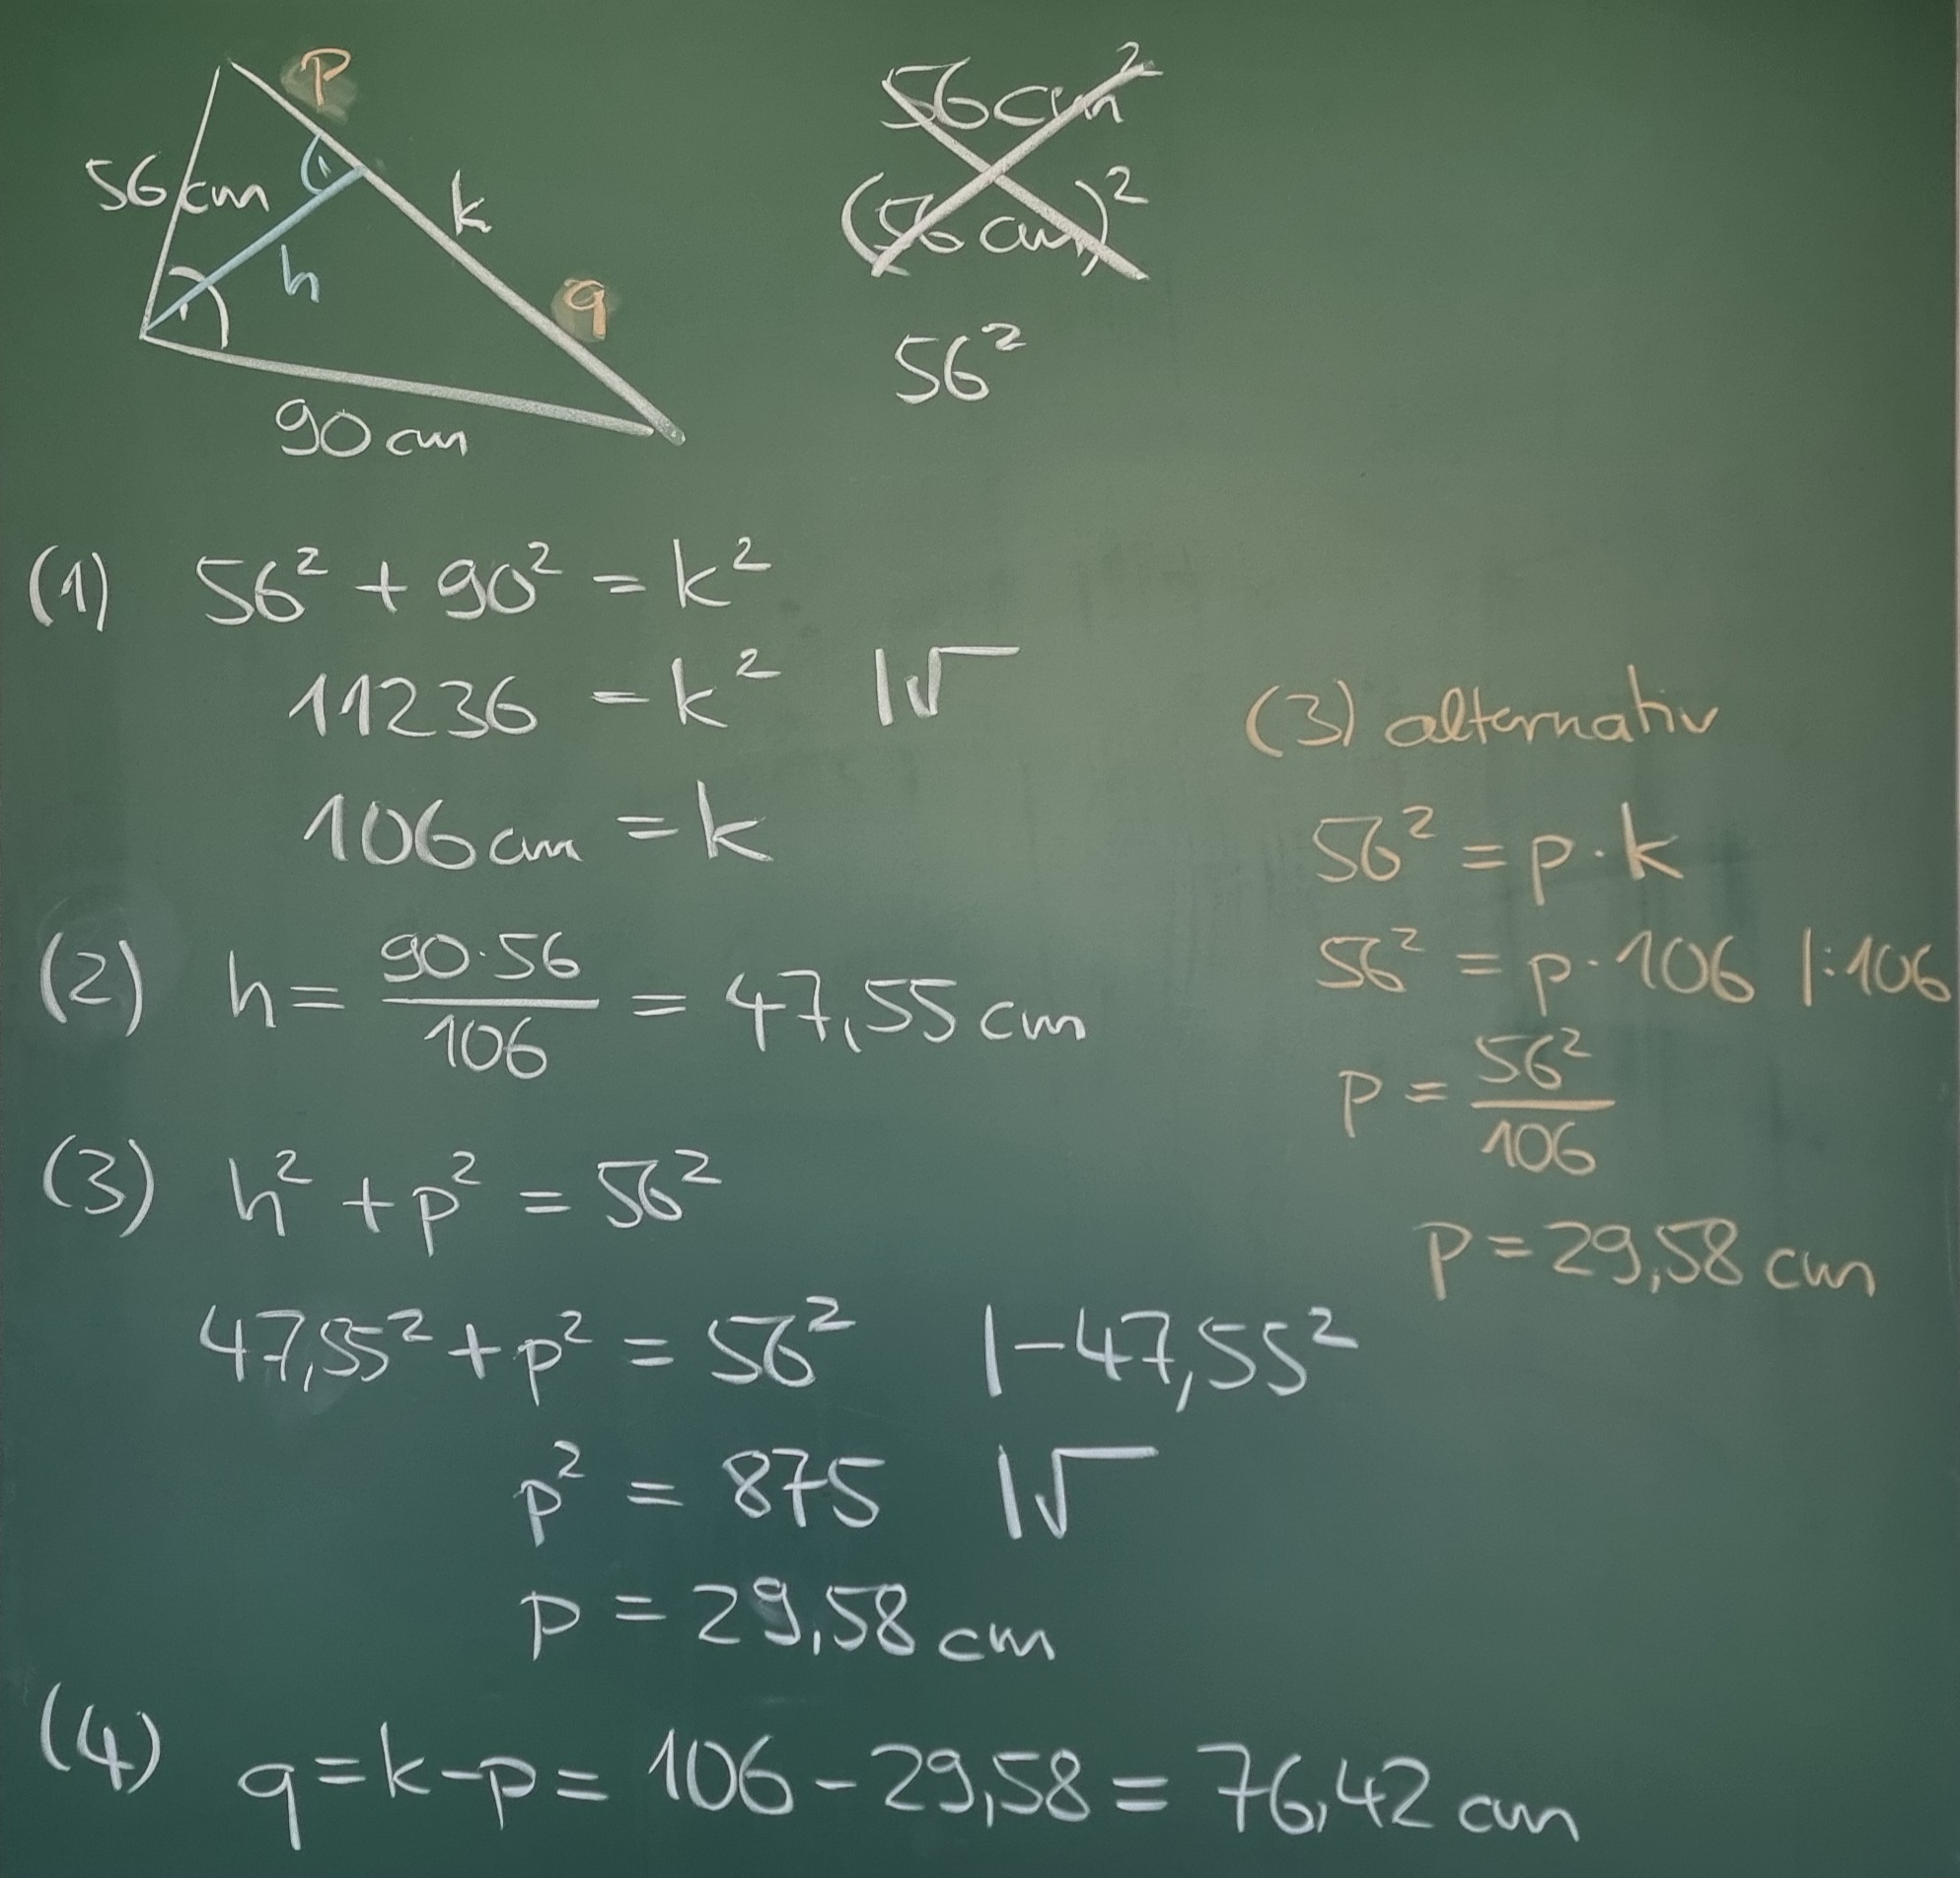 p
56 cm
k
h
q
90 cm
56cm²
(56 cm)²
56²
(1) 56² + 90² = k²
11236 = k² |√
106 cm = k
(2) h = 90·56/106 = 47,55 cm
(3) h² + p² = 56²
47,55² + p² = 56² |-47,55²
p² = 875 |√
p = 29,58 cm
(4) q = k - p = 106 - 29,58 = 76,42 cm
(3) alternativ
56² = p · k
56² = p · 106 |:106
p = 56²/106
p = 29,58 cm